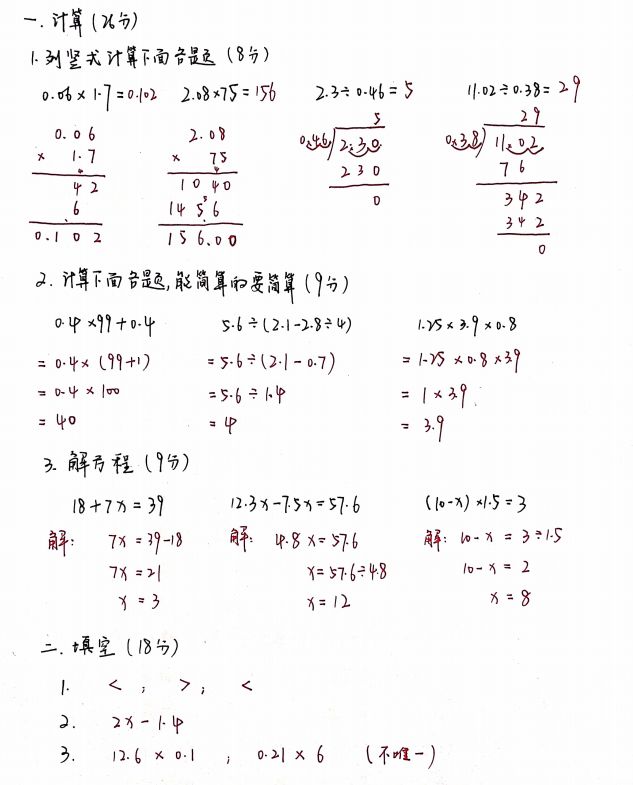 一. 计算(26分)
1. 列竖式计算下面各题(8分)
0.06×1.7=0.102 2.08×75=156 2.3÷0.46=5 11.02÷0.38=29
0.06 2.08 5 29
× 1.7 × 75 0.46)2.30 0.38)11.02
42 1040 230 76
6 1456 0 342
0.102 156.00 342
0
2. 计算下面各题,能简算的要简算(9分)
0.4×99+0.4 5.6÷(2.1-2.8÷4) 1.25×3.9×0.8
=0.4×(99+1) =5.6÷(2.1-0.7) =1.25×0.8×3.9
=0.4×100 =5.6÷1.4 =1×3.9
=40 =4 =3.9
3. 解方程(9分)
18+7x=39 12.3x-7.5x=57.6 (10-x)×1.5=3
解: 7x=39-18 解: 4.8x=57.6 解: 10-x=3÷1.5
7x=21 x=57.6÷4.8 10-x=2
x=3 x=12 x=8
二. 填空(18分)
1. < ; > ; <
2. 2x-1.4
3. 12.6×0.1 ; 0.21×6 (不唯一)